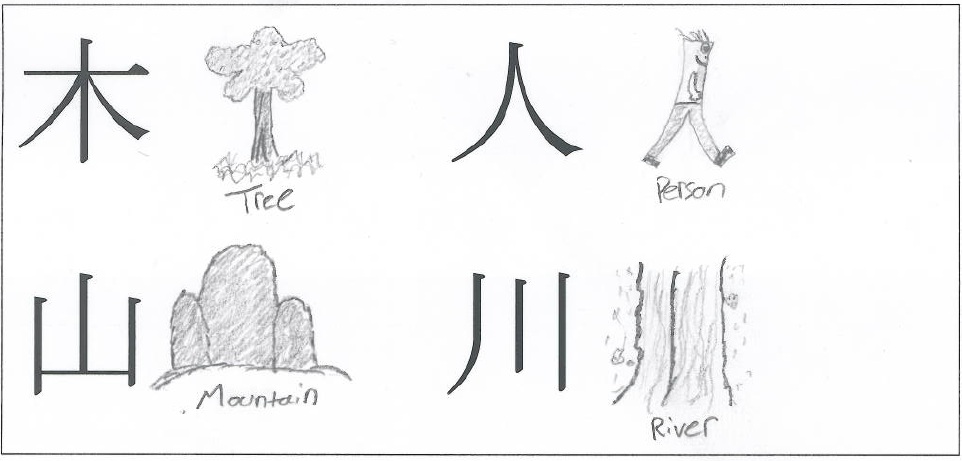 木 Tree 人 Person
山 Mountain 川 River